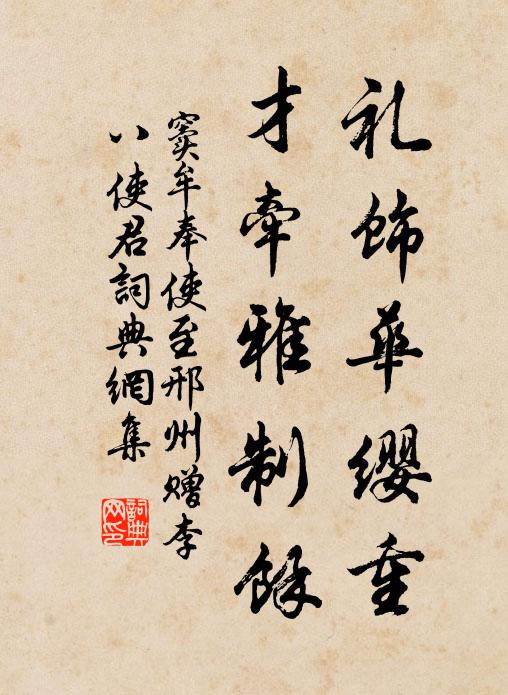 礼饰华缨重
才牵雅制馀
窦牟奉使至邢州赠李
八使君詞典網集
詞典
网印